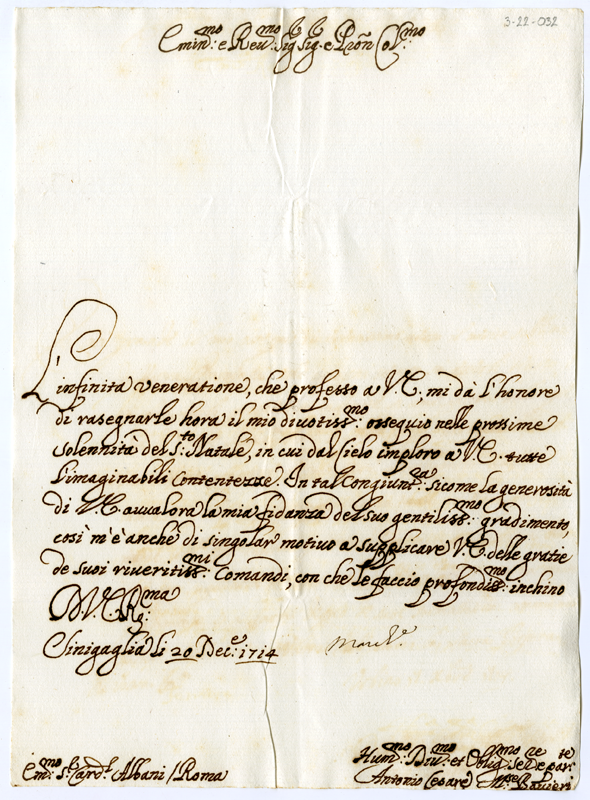 3-22-032
Emin:mo e Reu:mo Sig Sig e Prôn Col:mo
L'infinita veneratione, che professo a V.E., mi dà l'honore
di rasegnarle hora il mio diuotiss:mo ossequio nelle prossime
solennità del S:to Natale, in cui dal Cielo imploro a V.E. tutte
l'imaginabili contentezze. In tal Congiunt:za sicome la generosità
di V.E. auualora la mia fidanza del suo gentiliss:mo gradimento,
così m'è anche di singolar motivo a supplicare V.E. delle gratie
de suoi riueritiss:mi Comandi, con che le faccio profondiss:mo inchino
D.V.E. Rma
Sinigaglia li 20 Dec:e 1714
Em:mo S:r Card:l Albani / Roma
Hum:mo Diu:mo et Oblig:mo Se:re
Antonio Cesare